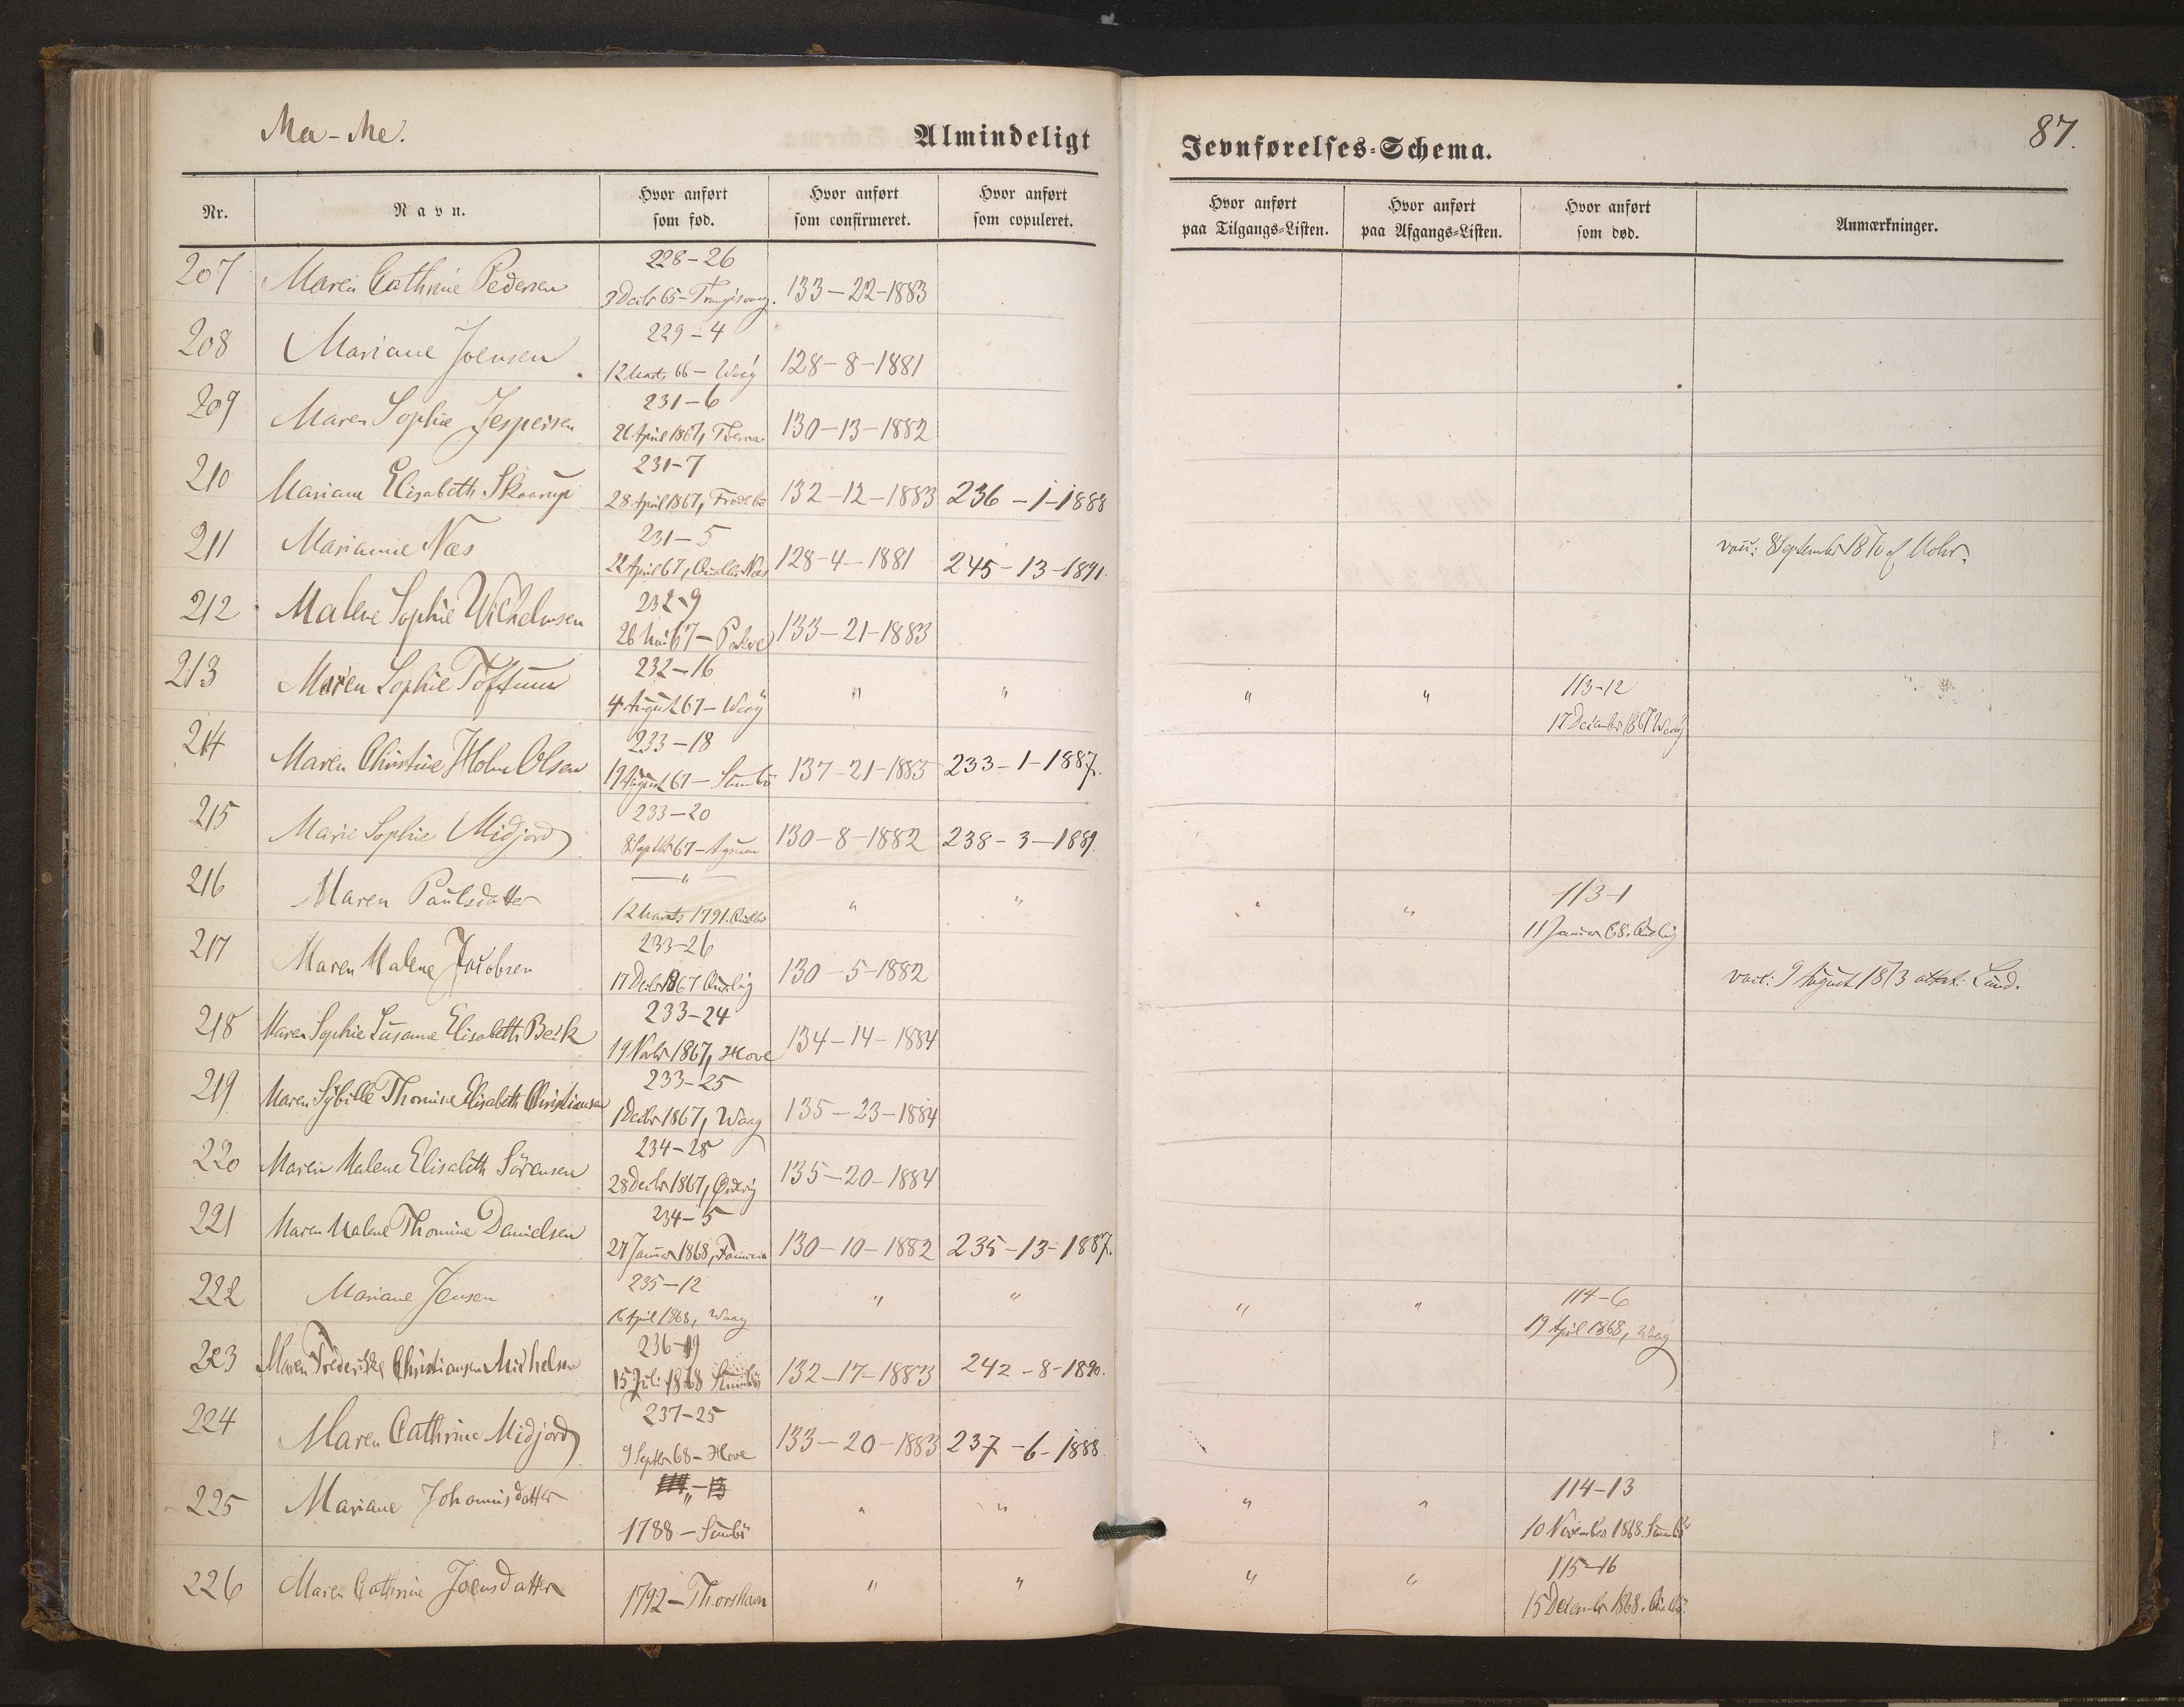 Ma-Me.
Almindeligt Jevnførelses-Schema.
87.
Nr. Navn. Hvor anført som fød. Hvor anført som confirmeret. Hvor anført som copuleret. Hvor anført paa Tilgangs-Listen. Hvor anført paa Afgangs-Listen. Hvor anført som død. Anmærkninger.
228-26
207 Maren Cathrine Pedersen 3 Decbr 65- 133-22-1883
229-4
208 Mariane Joensen 12 Marts 66- Waag 128-8-1881
231-6
209 Maren Sophie Jespersen 26 April 1867, 130-13-1882
231-7
210 Mariane Elisabeth Skaarup 28 April 1867, Frodebø 132-12-1883 236-1-1888
231-5
211 Marianne Næs 22 April 67, Næs 128-4-1881 245-13-1891. 8 September 1870 Mohr.
232-9
212 Malene Sophie Vilhelmsen 26 Mai 67- 133-21-1883
232-16 113-12
213 Maren Sophie Toftum 4 August 67- Waag " " " " 17 December 1867 Waag
233-18
214 Maren Christine Holm Olsen 19 August 67- Sumbø 137-21-1885 233-1-1887.
233-20
215 Marie Sophie Midjord 8 Septbr 67- 130-8-1882 238-3-1889.
" 113-1
216 Maren Paulsdatter 12 Marts 1791. " " " " 11 Januar 68.
233-26
217 Maren Malene Jacobsen 17 Decbr 1867 130-5-1882 9 August 1873 attest. Lund.
233-24
218 Maren Sophie Susanne Elisabeth Beck 19 Novbr 1867, Hove 134-14-1884
233-25
219 Maren Sybille Thomine Elisabeth Christiansen 1 Decbr 1867, Waag 135-23-1884
234-28
220 Maren Malene Elisabeth Sörensen 28 Decbr 1867, 135-20-1884
234-5
221 Maren Malene Thomine Danielsen 27 Januar 1868, 130-10-1882 235-13-1887.
235-12 114-6
222 Mariane Jensen 16 April 1868, Waag " " " " 19 April 1868, Waag
236-19
223 Maren Frederikke Christiansen Michelsen 15 Juli 1868 Sumbø 132-17-1883 242-8-1890.
237-25
224 Maren Cathrine Midjord 9 Septbr 68- Hove 133-20-1883 237-6-1888.
" 114-13
225 Mariane Johannisdatter 1788- Sumbø " " " " 10 November 1868. Sumbø
115-16
226 Maren Cathrine Joensdatter 1792- Thorshavn " " " " 15 December 1868.